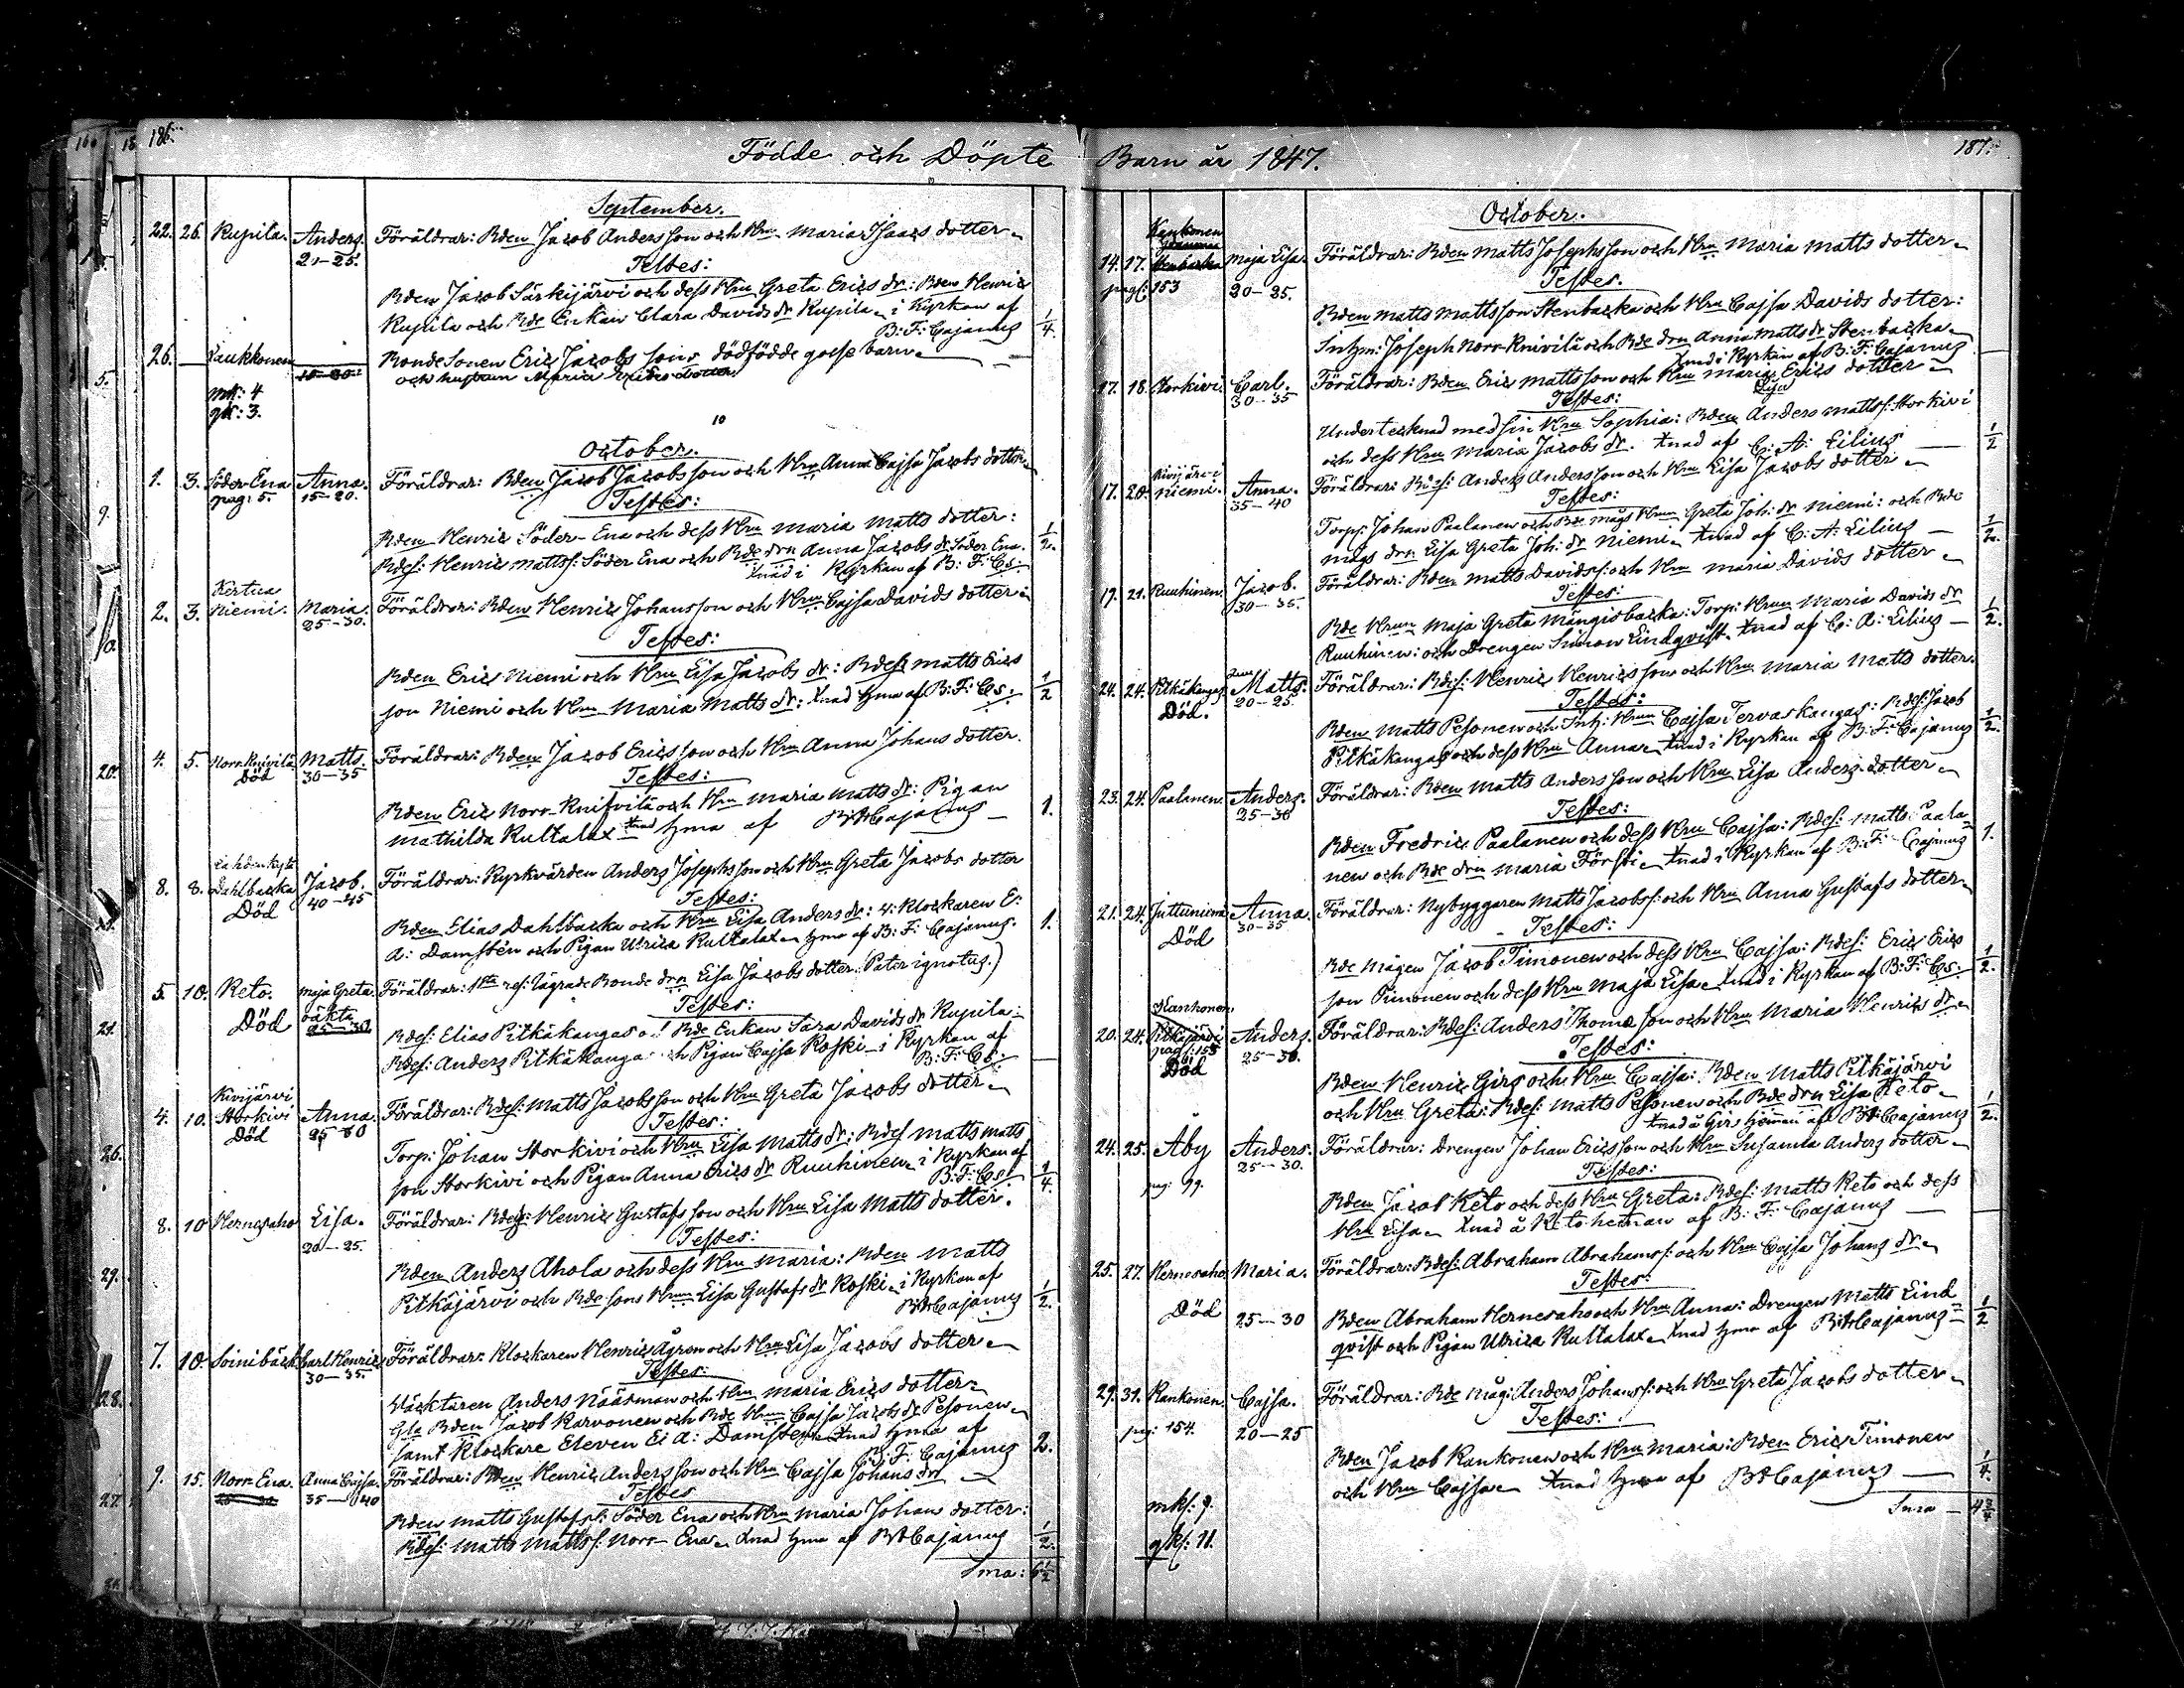 186.
Födde och Döpte
September.
22. 26. Rupila. Anders. Föräldrar: Bden Jacob Andersson och Hru Maria Isaacs dotter
21-25.
Testes:
Bden Jacob Särkijärvi och dess Hru Greta Erics dr: Bden Henric
Rupila och Bde Enkan Clara Davids dr Rupila i Kyrkan af
B: F: Cajanus 1/4.
26. Kaukkonen Bonde Sonen Eric Jacobs sons dödfödde gosse barn
och hustrun Maria
mk: 4
qk: 3.
10
October.
1. 3. Söder Ena Anna. Föräldrar: Bden Jacob Jacobsson och Hru Anna Cajsa Jacobs dotter
pag: 5. 15-20.
Testes:
Bden Henric Söder-Ena och dess Hru Maria Matts dotter:
Bdes: Henric Mattss: Söder Ena och Bde drn Anna Jacobs dr Söder Ena. 1/2.
Xnad i Kyrkan af B: F: Cs:
Kertua
2. 3. Niemi. Maria. Föräldrar: Bden Henric Johansson och Hru Cajsa Davids dotter
25-30.
Testes:
Bden Eric Niemi och Hru Lisa Jacobs dr: Bdes: Matts Erics
son Niemi och Hru Maria Matts dr: Xnad hma af B: F: Cs: 1/2
4. 5. Norr Knivilä Matts. Föräldrar: Bden Jacob Ericsson och Hru Anna Johans dotter.
Död 30-35
Testes:
Bden Eric Norr-Knifvilä och Hru Maria Matts dr: Pigan
Mathilda Kultalax Xnad hma af BFCajanus 1.
8. 8. Dahlbacka Jacob. Föräldrar: Kyrkvärden Anders Josephsson och Hru Greta Jacobs dotter
Död 40-45
Testes:
Bden Elias Dahlbacka och Hru Lisa Anders dr: 4: Klockaren E:
A: Damstén och Pigan Ulrica Kultalax hma af B: F: Cajanus. 1.
5. 10. Keto. Maja Greta. Föräldrar: 1sta res: lägrade Bonde drn Lisa Jacobs dotter. Pater ignotus.)
oäkta
Död 25-30
Testes:
Bdes: Elias Pitkäkangas o Bde Enkan Sara Davids dr Rupila:
Bdes: Anders Pitkäkanga och Pigan Cajsa Koski i Kyrkan af
B: F: Cs:
Kivijärvi
4. 10. Storkivi Anna. Föräldrar: Bdes: Matts Jacobsson och Hru Greta Jacobs dotter
Död 25 30
Testes:
Torp: Johan Storkivi och Hru Lisa Matts dr: Bdes Matts Matts
son Storkivi och Pigan Anna Erics dr Ruuhinen i Kyrkan af
B: F: Cs: 1/4.
8. 10 Hernesaho Lisa. Föräldrar: Bdes: Henric Gustafsson och Hru Lisa Matts dotter.
20-25.
Testes:
Bden Anders Ahola och dess Hru Maria: Bden Matts
Pitkäjärvi och Bde sons Hru Lisa Gustafs dr Koski i Kyrkan af
BFCajanus 1/2.
7. 10. Soinibäck Carl Henric Föräldrar: Klockaren Henric Ågren och Hru Lisa Jacobs dotter
30-35.
Testes:
Häcktaren Anders Näärman och Hru Maria Erics dotter
Gla Bden Jacob Karvonen och Bde Hrun Cajsa Jacobs dr Pesonen
samt Klockare Eleven E: A: Damsten Xnad hma af
B: F: Cajanus 2.
9. 15. Norr Ena. Anna Cajsa. Föräldrar: Bden Henric Andersson och Hru Cajsa Johans dr
35-40
Testes
Bden Matts Gustafss: Söder Ena och Hru Maria Johans dotter:
Bdes: Matts Mattss: Norr-Ena Xnad hma af BFCajanus 1/2.
Sma: 6 1/2
Barn år 1847.
187.
October.
Kankonen
14. 17. Stenbacka Maja Lisa. Föräldrar: Bden Matts Josephsson och Hru Maria Matts dotter
pag: 153 20-25.
Testes.
Bden Matts Mattsson Stenbacka och Hru Cajsa Davids dotter:
Inhm: Joseph Norr-Knivilä och Bde drn Anna Matts dr Stenbacka
Xnad i Kyrkan af B: F: Cajanus
17. 18. Storkivi Carl. Föräldrar: Bden Eric Mattsson och Hru Maria Erics dotter
30-35 Lisa
Testes:
Undertecknad med sin Hru Sophia: Bden Anders Mattss: Storkivi
och dess Hru Maria Jacobs dr. Xnad af C: A: Lilius 1/2
Kivijärvi
17. 20. Niemi. Anna. Föräldrar: Bdes: Anders Andersson och Hru Lisa Jacobs dotter
35-40
Testes:
Torp: Johan Paalanen och Bde mågs Hrun Greta Joh: dr Niemi: och Bde
mågs drn Lisa Greta Joh: dr Niemi Xnad af C: A: Lilius 1/2.
19. 21. Ruuhinen. Jacob. Föräldrar: Bden Matts Davidss: och Hru Maria Davids dotter
30-35.
Testes:
Bde Hrun Maja Greta Mängisbacka: Torp: Hrun Maria Davids dr
Ruuhinen: och Drengen Simon Lindqvist. Xnad af C: A: Lilius 1/2.
24. 24. Pitkäkangas. Matts. Föräldrar: Bdes: Henric Henricsson och Hru Maria Matts dotter.
Död. 20-25.
Testes:
Bden Matts Pesonen och Inh: Hrun Cajsa Tervaskangas: Bdes: Jacob
Pitkäkangas och dess Hru Anna Xnad i Kyrkan af B: F: Cajanus 1/2.
23. 24. Paalanen Anders. Föräldrar: Bden Matts Andersson och Hru Lisa Anders dotter
25-30
Testes:
Bden Fredric Paalanen och dess Hru Cajsa: Bdes: Matts Paala-
nen och Bde drn Maria Försti Xnad i Kyrkan af B: F: Cajanus 1.
21. 24. Juttuniemi Anna. Föräldrar: Nybyggaren Matts Jacobss: och Hru Anna Gustafs dotter
Död 30-35
Testes:
Bde Mågen Jacob Timonen och dess Hru Cajsa: Bdes: Eric Erics
son Timonen och dess Hru Maja Lisa Xnad i Kyrkan af B: F: Cs: 1/2.
Kankonen
20. 24. Pitkäjärvi Anders. Föräldrar: Bdes: Anders Thomæ son och Hru Maria Henrics dr
pag: 155 25-30.
Död
Testes:
Bden Henric Girs och Hru Cajsa: Bden Matts Pitkäjärvi
och Hru Greta: Bdes: Matts Pesonen och Bde drn Lisa Keto
Xnad å Girs hemman af BFCajanus 1/2.
24. 25. Åby Anders. Föräldrar: Drengen Johan Ericsson och Hru Susanna Anders dotter
pag: 99. 25-30.
Testes:
Bden Jacob Keto och dess Hru Greta: Bdes: Matts Keto och dess
Hru Lisa Xnad å Keto heman af B: F: Cajanus
25. 27. Hernesaho Maria. Föräldrar: Bdes: Abraham Abrahamss: och Hru Cajsa Johans dr
Testes:
Död 25-30 Bden Abraham Hernesaho och Hru Anna: Drengen Matts Lind
qvist och Pigan Ulrica Kultalax Xnad hma af BFCajanus 1/2
29. 31. Kankonen. Cajsa. Föräldrar: Bde Måg: Anders Johanss: och Hru Greta Jacobs dotter
pag: 154. 20-25
Testes:
Bden Jacob Kankonen och Hru Maria: Bden Eric Timonen
och Hru Cajsa Xnad hma af BFCajanus 1/4.
mk: 9.
qk: 11.
Sma 4 3/4